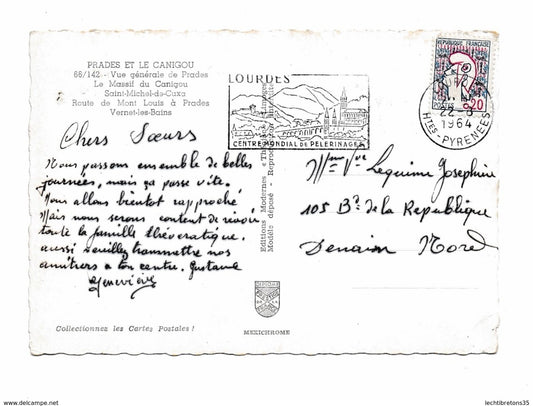 PRADES ET LE CANIGOU
66/142 - Vue générale de Prades
Le Massif du Canigou
Saint-Michel-de-Cuxa
Route de Mont Louis à Prades
Vernet-les-Bains
Chers Sœurs
Nous passons ensemble de belles
journées, mais ça passe vite.
Nous allons bientot rapproché
Mais nous serons content de revoir
toute la famille
aussi veuillez transmettre nos
amitiers a ton centre. Gustave
Geneviève
Collectionnez les Cartes Postales !
Editions Modernes
Modèle déposé - Reproduction interdite
MEXICHROME
LOURDES
CENTRE MONDIAL DE PELERINAGES
REPUBLIQUE FRANÇAISE
POSTES
0,20
22-8
1964
HTES-PYRENEES
Mme Vve Lequime Josephine
105 Bd de la Republique
Denain Nord
www.delcampe.net
lechtibretons35